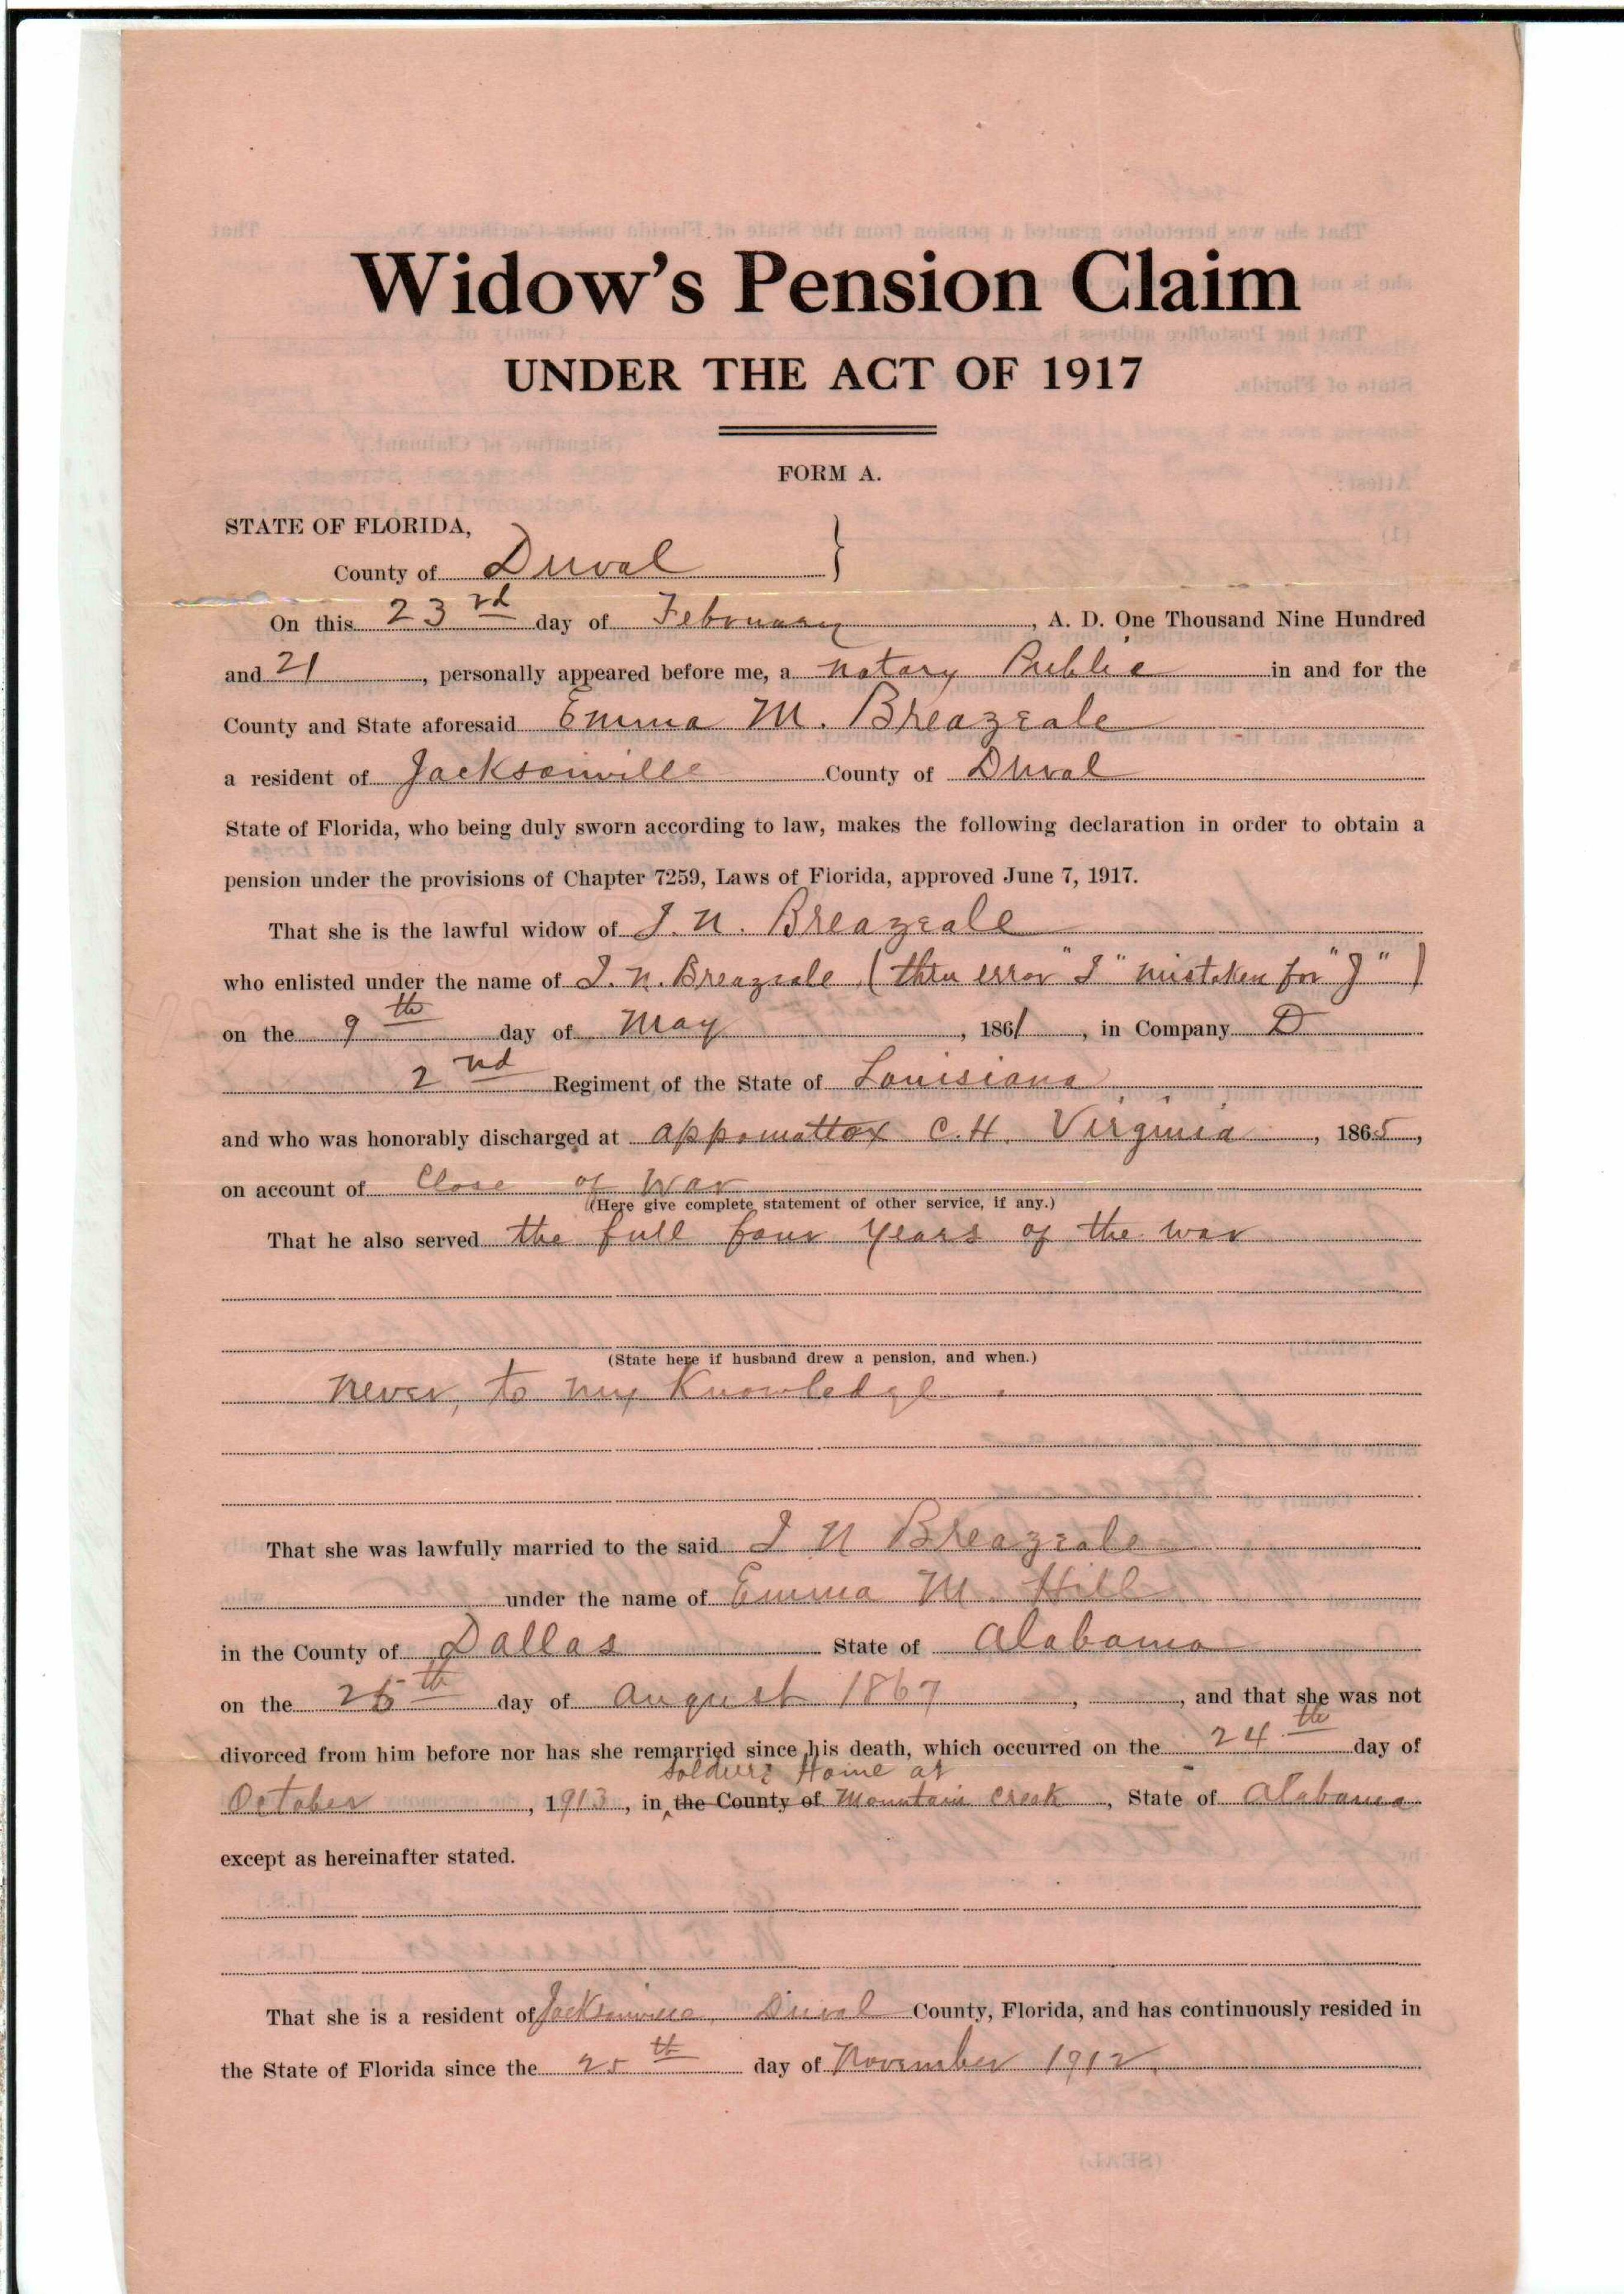 Widow's Pension Claim
UNDER THE ACT OF 1917
FORM A.
STATE OF FLORIDA,
County of Duval
On this 23rd day of February, A. D. One Thousand Nine Hundred
and 21, personally appeared before me, a Notary Public in and for the
County and State aforesaid Emma M. Breazeale
a resident of Jacksonville County of Duval
State of Florida, who being duly sworn according to law, makes the following declaration in order to obtain a
pension under the provisions of Chapter 7259, Laws of Florida, approved June 7, 1917.
That she is the lawful widow of J. N. Breazeale
who enlisted under the name of I. N. Breazeale (thru error "I" mistaken for "J")
on the 9th day of May, 1861, in Company D
2nd Regiment of the State of Louisiana
and who was honorably discharged at Appomattox C. H. Virginia, 1865,
on account of Close of War
(Here give complete statement of other service, if any.)
That he also served the full four years of the war
(State here if husband drew a pension, and when.)
Never, to my Knowledge.
That she was lawfully married to the said J N Breazeale
under the name of Emma M. Hill
in the County of Dallas State of Alabama
on the day of August 1867, , and that she was not
divorced from him before nor has she remarried since his death, which occurred on the 24th day of
Soldiers Home at
October, 1913, in the County of Mountain Creek, State of Alabama
except as hereinafter stated.
That she is a resident of Jacksonville, Duval County, Florida, and has continuously resided in
the State of Florida since the 25th day of November 1912